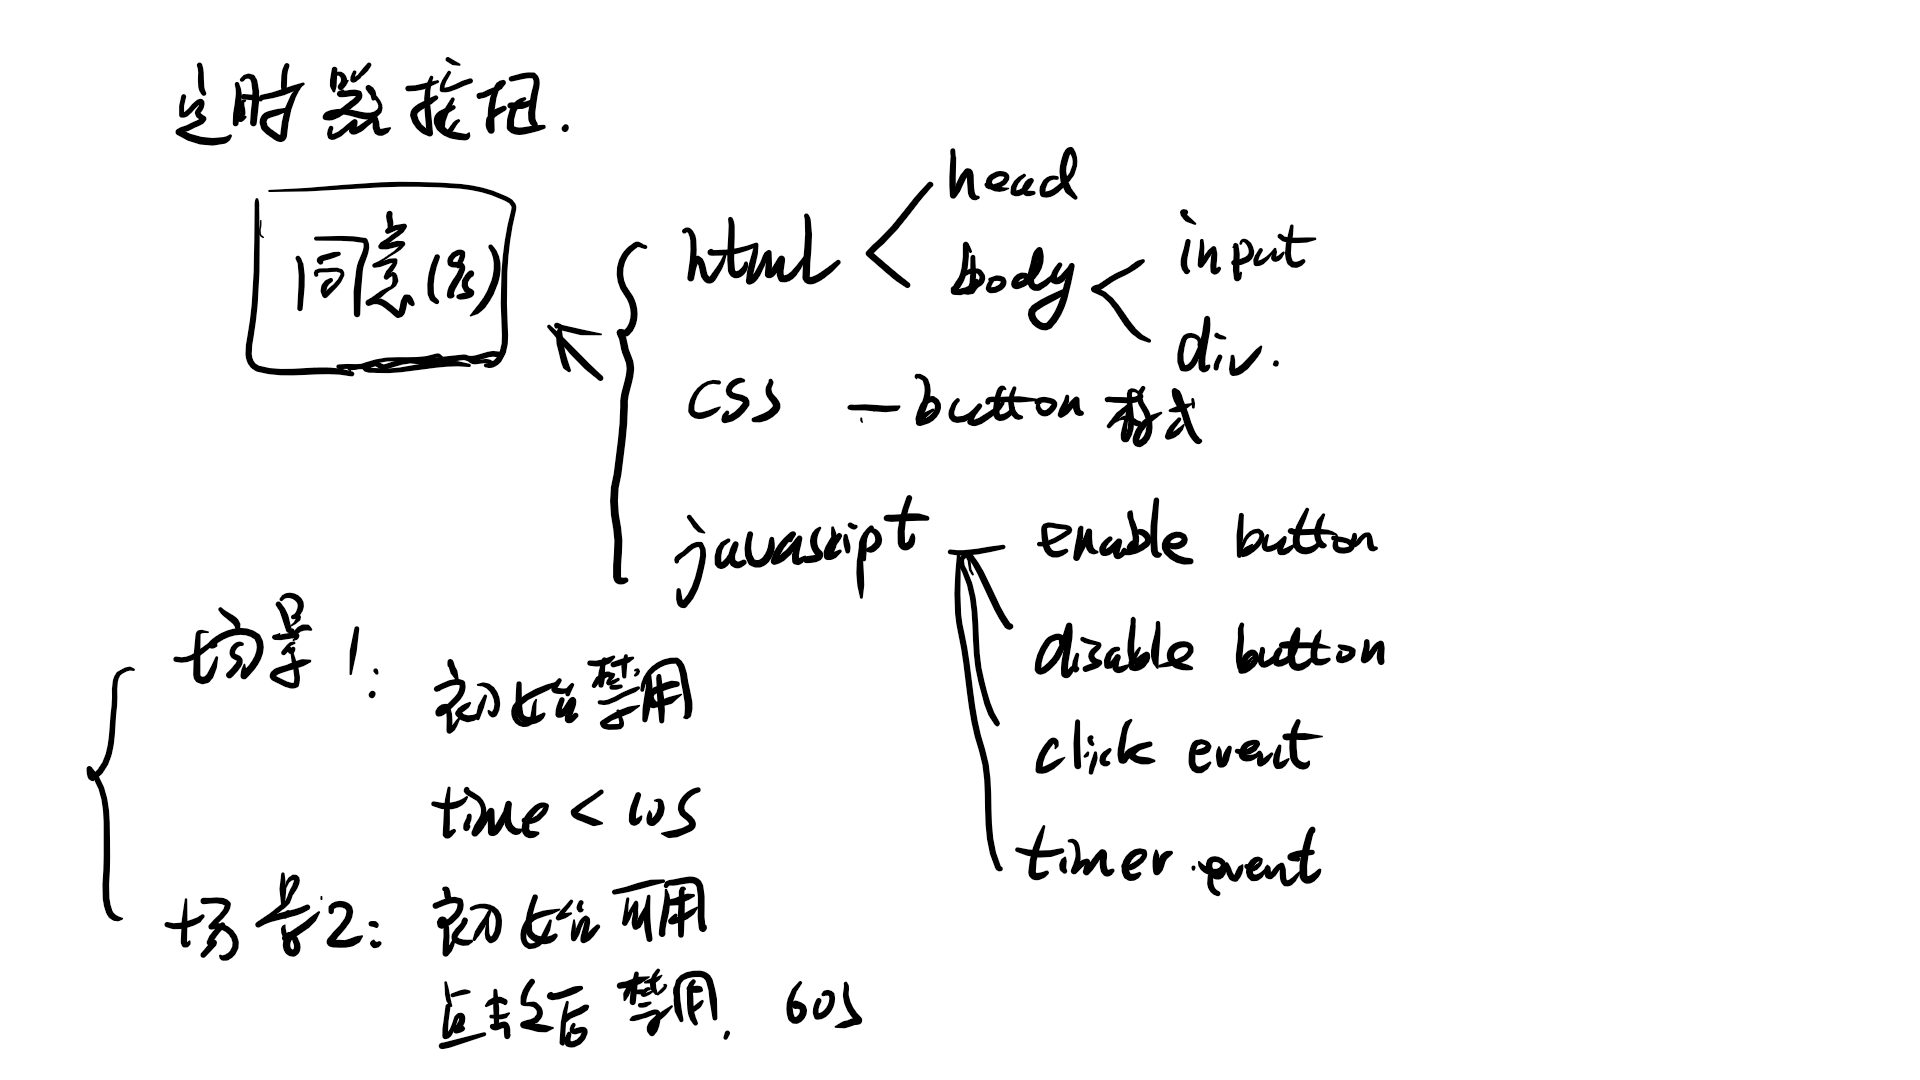 定时器按钮.
同意(9s)
html
head
body
input
div.
css — button 样式
javascript
enable button
disable button
click event
timer event
场景1:
初始禁用
time < 10s
场景2: 初始可用
点击之后 禁用. 60s